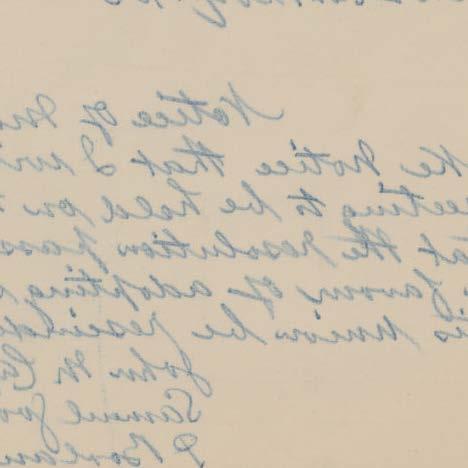 Notice of Mo
ke Notice that I wi
eeting to be held on
at the resolution pass
favour of adopting
is union be rescind
John M
Samuel